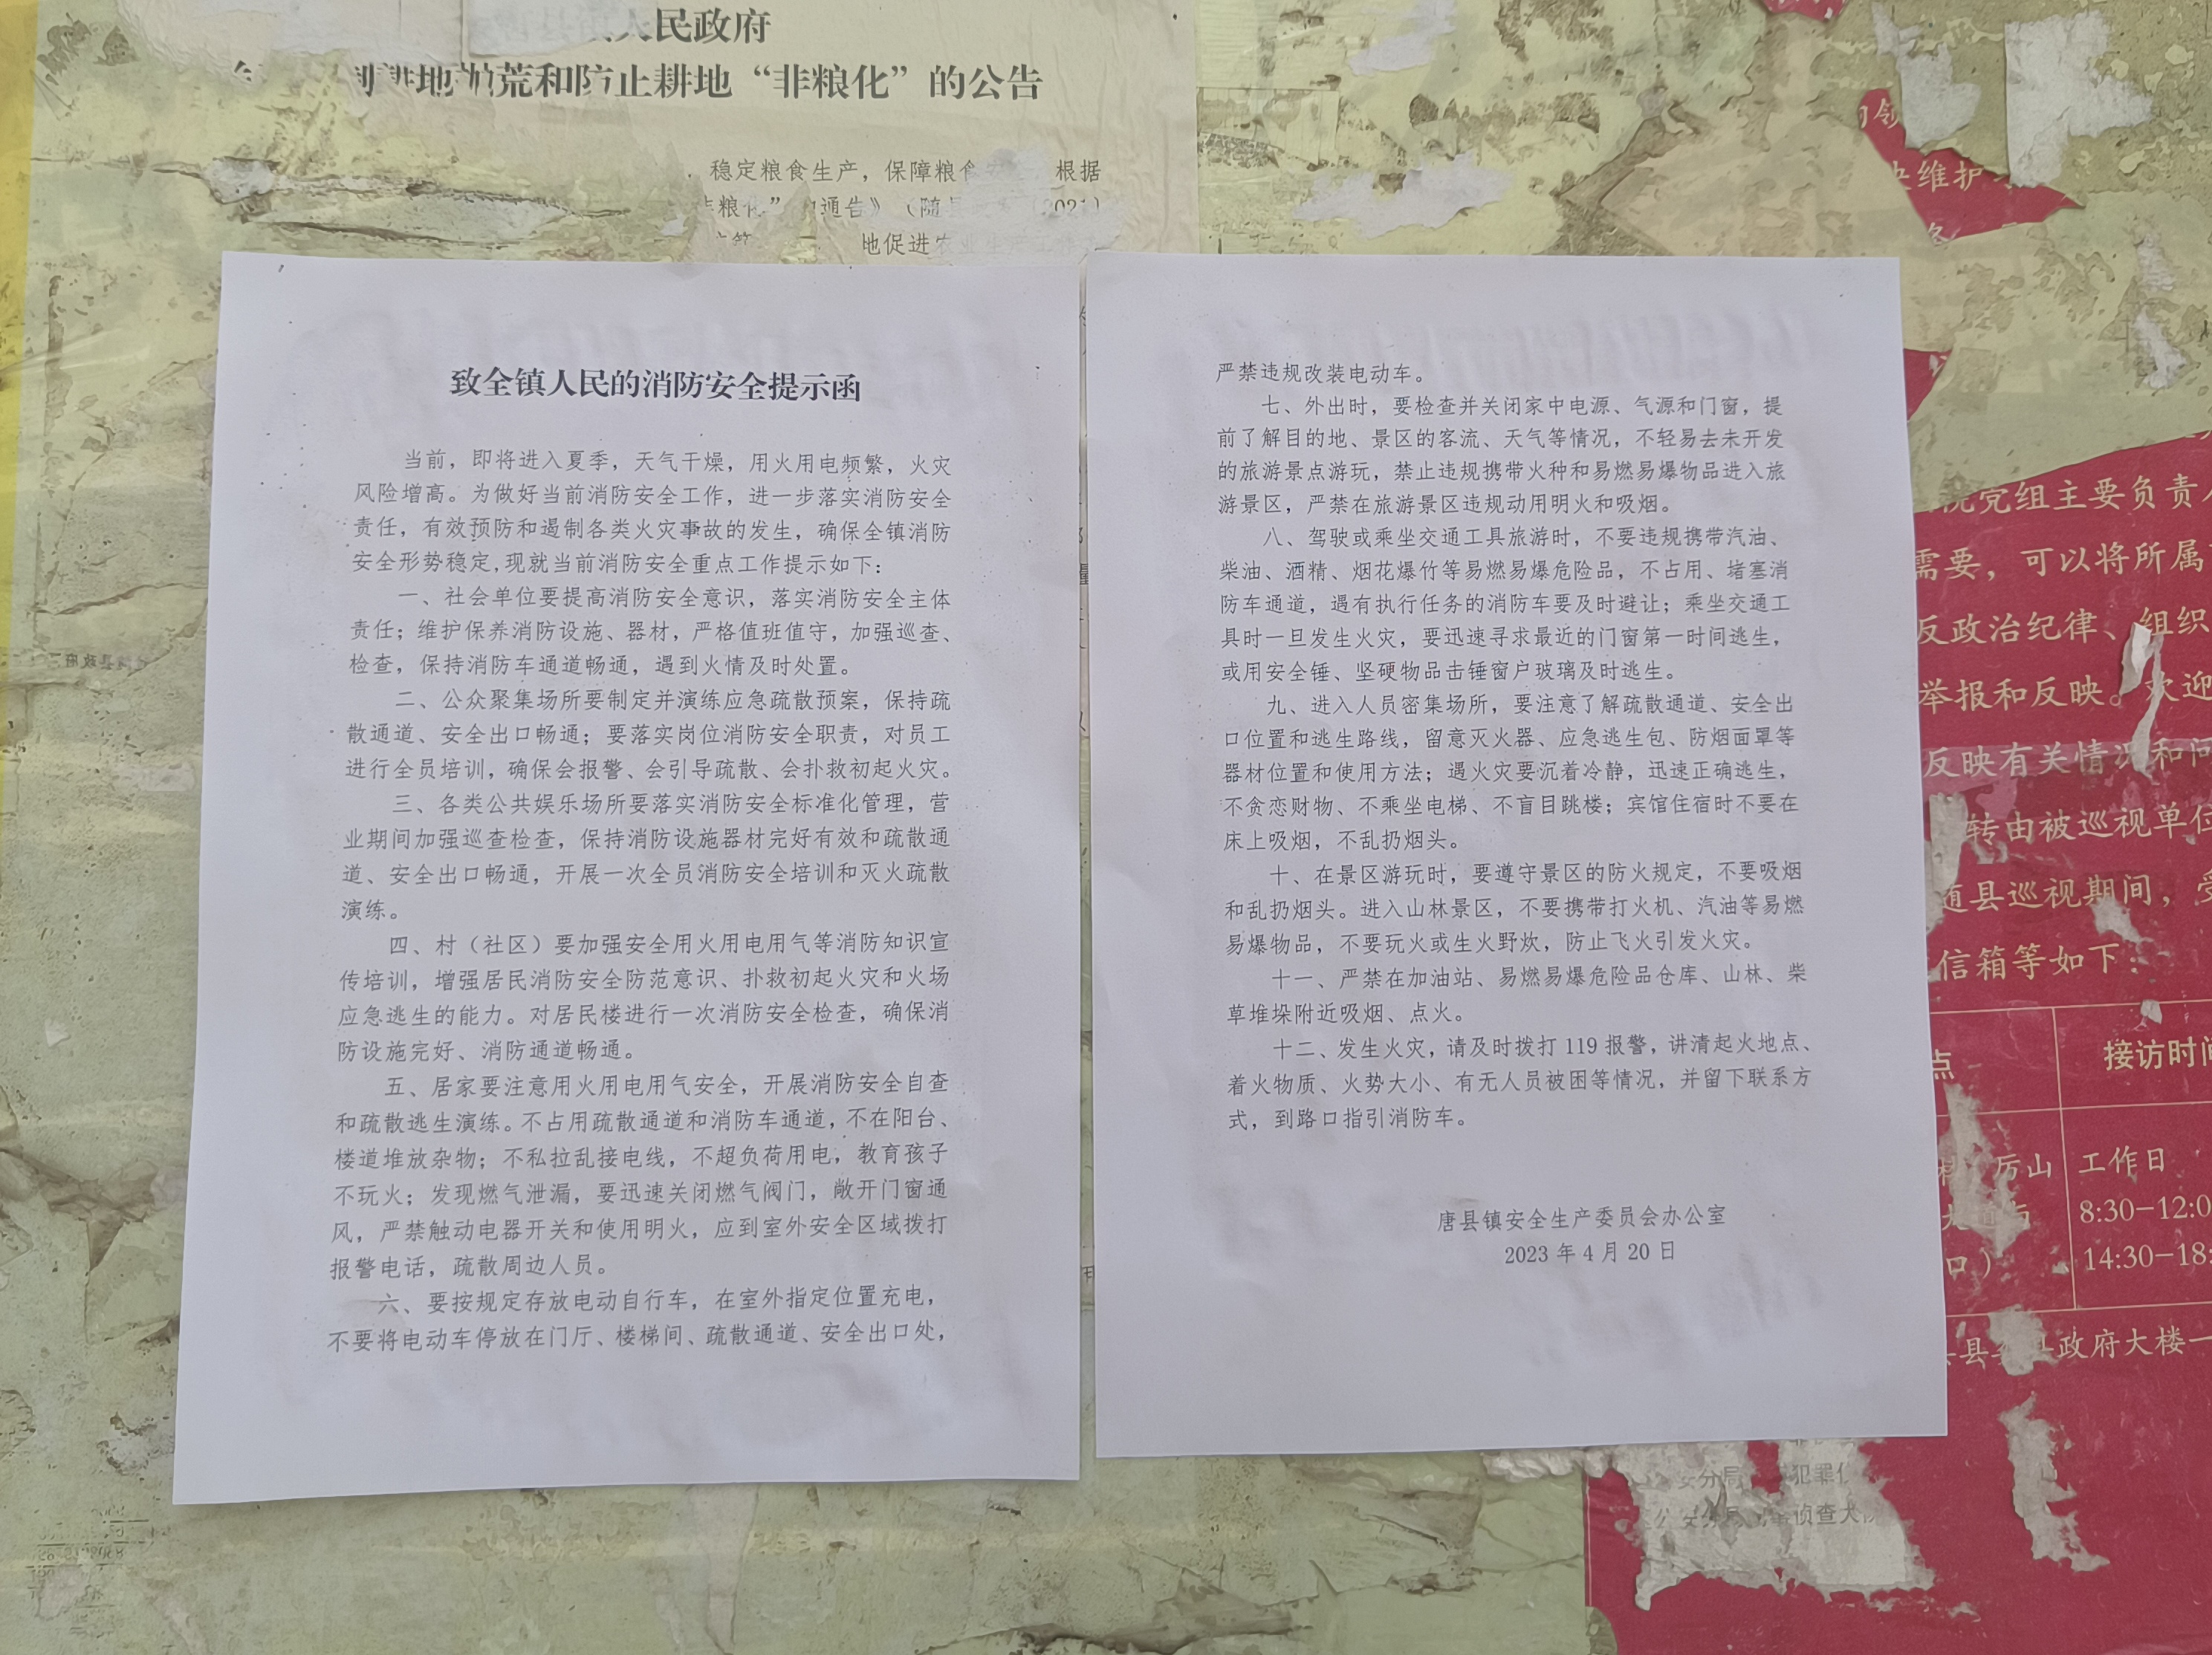 人民政府
荒和防止耕地“非粮化”的公告
稳定粮食生产，保障粮食
根据
粮化”
通告》（随
2021）
地促进农业生
致全镇人民的消防安全提示函
当前，即将进入夏季，天气干燥，用火用电频繁，火灾
风险增高。为做好当前消防安全工作，进一步落实消防安全
责任，有效预防和遏制各类火灾事故的发生，确保全镇消防
安全形势稳定,现就当前消防安全重点工作提示如下：
一、社会单位要提高消防安全意识，落实消防安全主体
责任；维护保养消防设施、器材，严格值班值守，加强巡查、
检查，保持消防车通道畅通，遇到火情及时处置。
二、公众聚集场所要制定并演练应急疏散预案，保持疏
散通道、安全出口畅通；要落实岗位消防安全职责，对员工
进行全员培训，确保会报警、会引导疏散、会扑救初起火灾。
三、各类公共娱乐场所要落实消防安全标准化管理，营
业期间加强巡查检查，保持消防设施器材完好有效和疏散通
道、安全出口畅通，开展一次全员消防安全培训和灭火疏散
演练。
四、村（社区）要加强安全用火用电用气等消防知识宣
传培训，增强居民消防安全防范意识、扑救初起火灾和火场
应急逃生的能力。对居民楼进行一次消防安全检查，确保消
防设施完好、消防通道畅通。
五、居家要注意用火用电用气安全，开展消防安全自查
和疏散逃生演练。不占用疏散通道和消防车通道，不在阳台、
楼道堆放杂物；不私拉乱接电线，不超负荷用电，教育孩子
不玩火；发现燃气泄漏，要迅速关闭燃气阀门，敞开门窗通
风，严禁触动电器开关和使用明火，应到室外安全区域拨打
报警电话，疏散周边人员。
六、要按规定存放电动自行车，在室外指定位置充电，
不要将电动车停放在门厅、楼梯间、疏散通道、安全出口处，
严禁违规改装电动车。
七、外出时，要检查并关闭家中电源、气源和门窗，提
前了解目的地、景区的客流、天气等情况，不轻易去未开发
的旅游景点游玩，禁止违规携带火种和易燃易爆物品进入旅
游景区，严禁在旅游景区违规动用明火和吸烟。
八、驾驶或乘坐交通工具旅游时，不要违规携带汽油、
柴油、酒精、烟花爆竹等易燃易爆危险品，不占用、堵塞消
防车通道，遇有执行任务的消防车要及时避让；乘坐交通工
具时一旦发生火灾，要迅速寻求最近的门窗第一时间逃生，
或用安全锤、坚硬物品击锤窗户玻璃及时逃生。
九、进入人员密集场所，要注意了解疏散通道、安全出
口位置和逃生路线，留意灭火器、应急逃生包、防烟面罩等
器材位置和使用方法；遇火灾要沉着冷静，迅速正确逃生，
不贪恋财物、不乘坐电梯、不盲目跳楼；宾馆住宿时不要在
床上吸烟，不乱扔烟头。
十、在景区游玩时，要遵守景区的防火规定，不要吸烟
和乱扔烟头。进入山林景区，不要携带打火机、汽油等易燃
易爆物品，不要玩火或生火野炊，防止飞火引发火灾。
十一、严禁在加油站、易燃易爆危险品仓库、山林、柴
草堆垛附近吸烟、点火。
十二、发生火灾，请及时拨打 119 报警，讲清起火地点、
着火物质、火势大小、有无人员被困等情况，并留下联系方
式，到路口指引消防车。
唐县镇安全生产委员会办公室
2023 年 4 月 20 日
维护
院党组主要负责
需要，可以将所属
反政治纪律、组织
举报和反映。欢迎
反映有关情况和问
转由被巡视单位
随县巡视期间，受
信箱等如下：
点
接访时间
厉山
工作日
8:30—12:0
口）
14:30—18:
县政府大楼一
分局
犯罪
侦查大